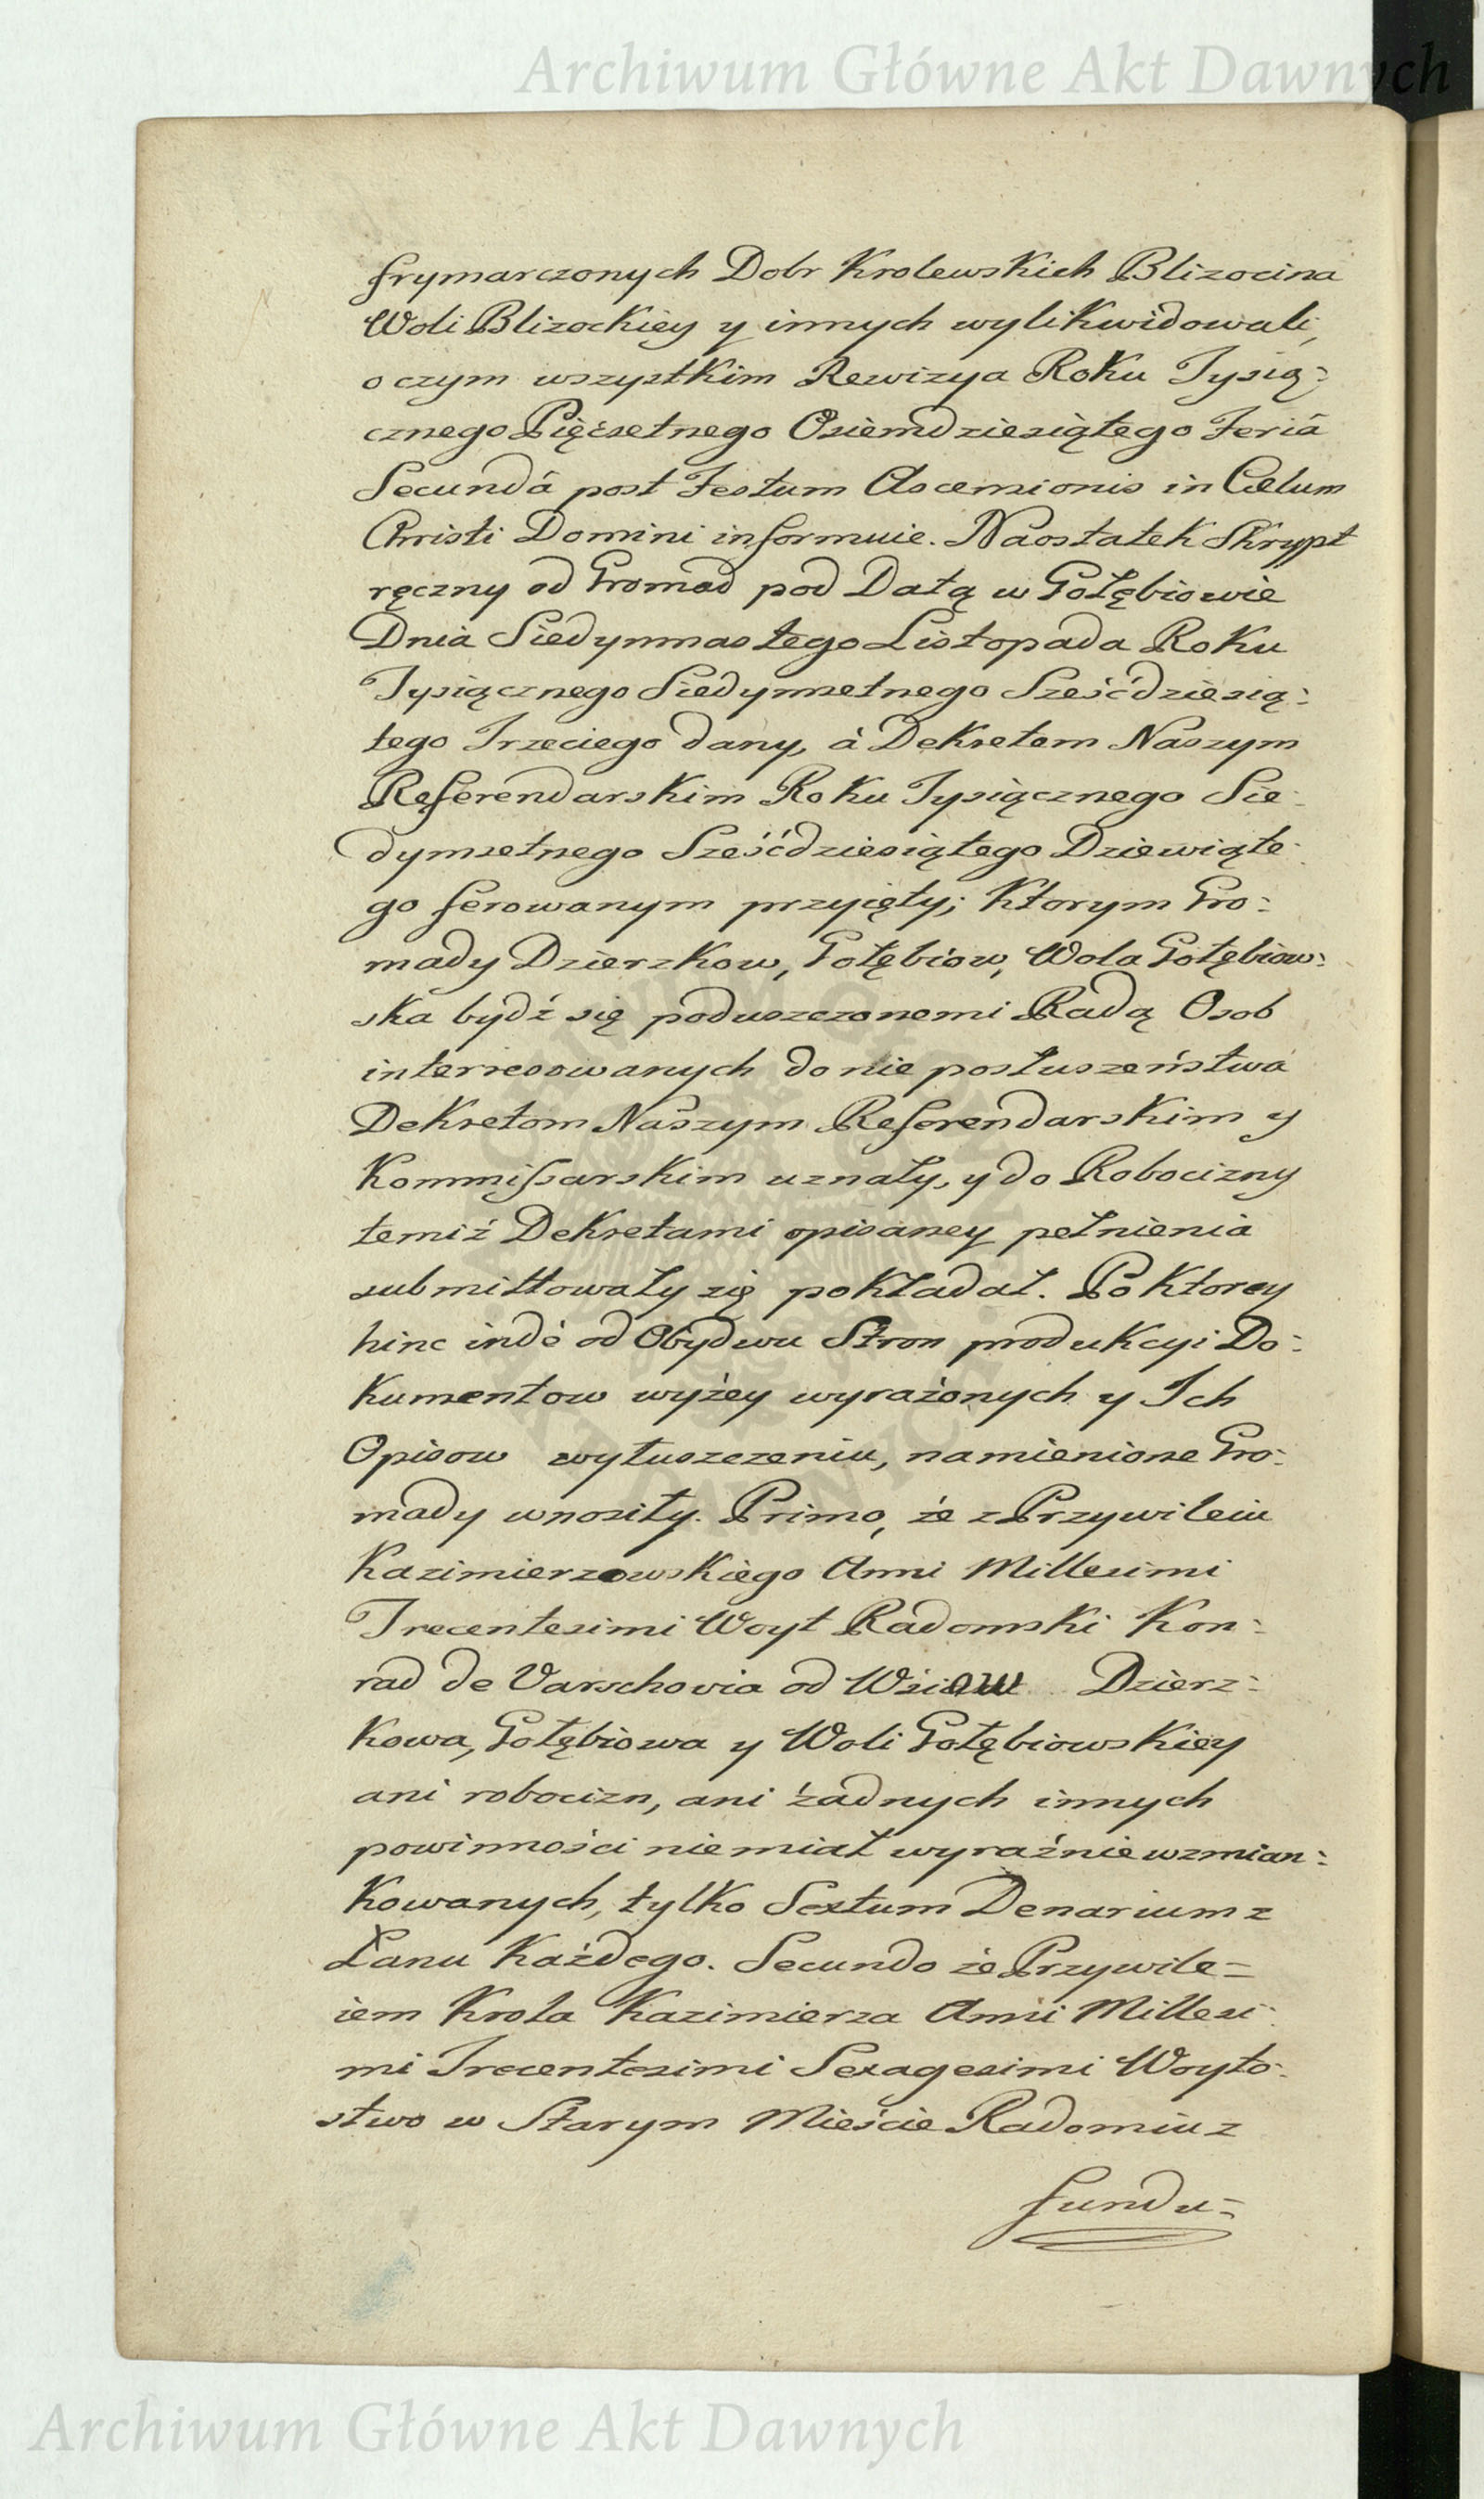 Archiwum Główne Akt Dawnych
frymarczonych Dobr Krolewskich Blizocina
Woli Blizockiey y innych wylikwidowali,
o czym wszystkim Rewizya Roku Tysią:
cznego Pięćsetnego Osiemdziesiątego Feriâ
Secundâ post Festum Ascensionis in Cœlum
Christi Domini informuie. Naostatek Skrypt
ręczny od Gromad pod Datą w Gołębiowie
Dnia Siedymnastego Listopada Roku
Tysiącznego Siedymsetnego Sześćdziesią:
tego Trzeciego dany, à Dekretem Naszym
Referendarskim Roku Tysiącznego Sie:
dymsetnego Sześćdziesiątego Dziewiąte:
go ferowanym przyięty; Ktorym Gro:
mady Dzierzkow, Gołębiow, Wola Gołębiow:
ska bydź się poduszczonemi Radą Osob
interressowanych do nie posłuszeństwa
Dekretom Naszym Referendarskim y
Kommissarskim uznały, y do Robocizny
temiż Dekretami opisaney pełnienia
submittowały się pokładał. Po Ktorey
hinc indè od Obydwu Stron produkcyi Do:
kumentow wyżey wyrażonych y Ich
Opisow wytuszczeniu, namienione Gro:
mady wnosiły. Primo, że z Przywileiu
Kazimierzowskiego Anni Millesimi
Trecentesimi Woyt Radomski Kon:
rad de Varschovia od Wsiow Dzierz:
kowa, Gołębiowa y Woli Gołębiowskiey
ani robocizn, ani żadnych innych
powinności nie miał wyraźnie wzmian:
kowanych, tylko Sextum Denarium z
Łanu Każdego. Secundo że Przywile=
iem Krola Kazimierza Anni Millesi:
mi Trecentesimi Sexagesimi Woyto:
stwo w Starym Mieście Radomiu z
fundu=
Archiwum Główne Akt Dawnych